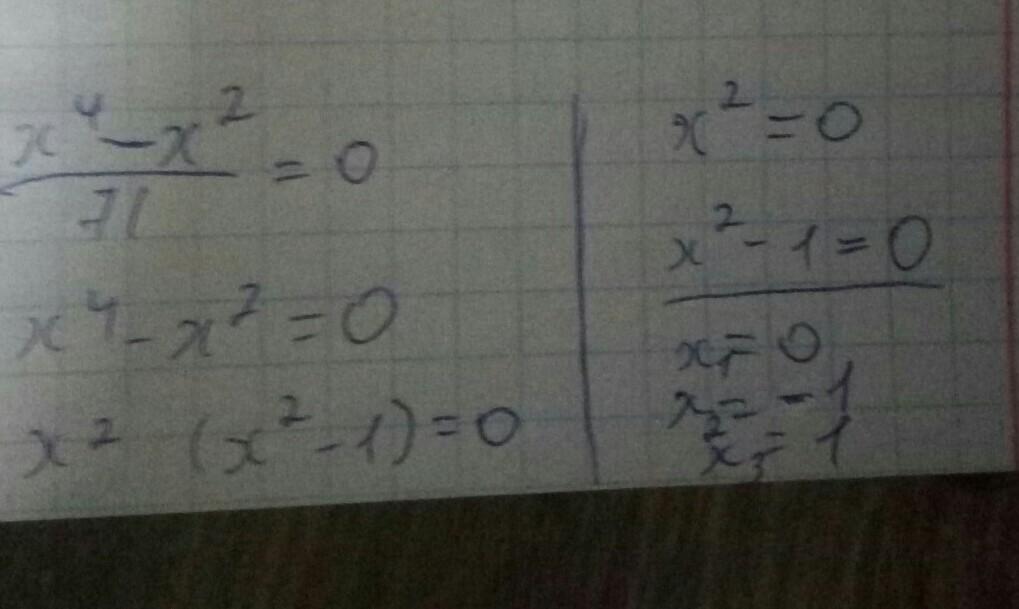 x⁴ - x²
71
= 0
x⁴ - x² = 0
x² (x² - 1) = 0
x² = 0
x² - 1 = 0
x₁ = 0
x₂ = -1
x₃ = 1